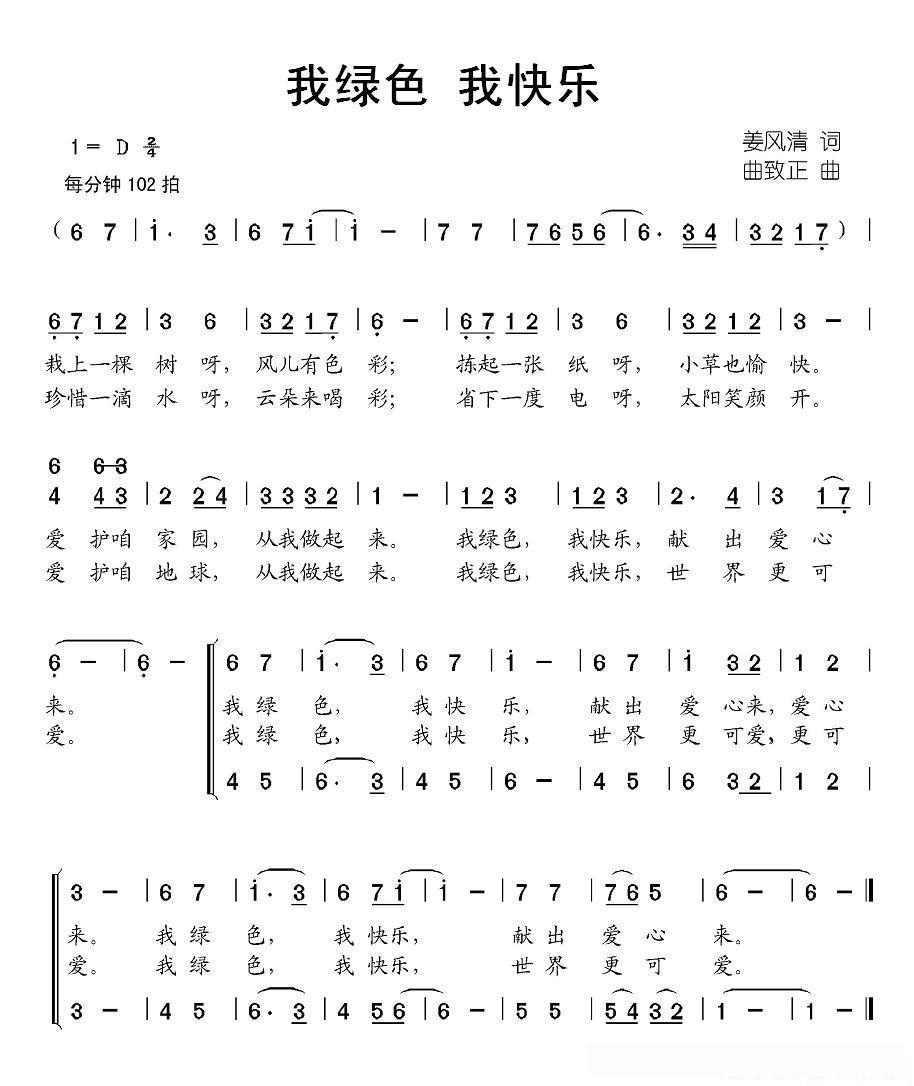 我绿色 我快乐
1= D 2/4
姜风清 词
每分钟 102 拍
曲致正 曲
( 6 7 | i· 3 | 6 7i | i - | 7 7 | 7656 | 6· 34 | 3217 ) |
6712 | 3 6 | 3217 | 6 - | 6712 | 3 6 | 3212 | 3 - |
栽上一棵 树 呀, 风儿有色 彩; 拣起一张 纸 呀, 小草也愉 快。
珍惜一滴 水 呀, 云朵来喝 彩; 省下一度 电 呀, 太阳笑颜 开。
6 63
4 43 | 2 24 | 3332 | 1 - | 123 | 123 | 2· 4 | 3 17 |
爱 护咱 家 园, 从我做起 来。 我绿色, 我快乐, 献 出 爱 心
爱 护咱 地 球, 从我做起 来。 我绿色, 我快乐, 世 界 更 可
6 - | 6 - 6 7 | i· 3 | 6 7 | i - | 6 7 | i 32 | 1 2 |
来。 我 绿 色, 我 快 乐, 献 出 爱 心来, 爱 心
爱。 我 绿 色, 我 快 乐, 世 界 更 可爱, 更 可
4 5 | 6· 3 | 4 5 | 6 - | 4 5 | 6 32 | 1 2 |
3 - | 6 7 | i· 3 | 6 7i | i - | 7 7 | 765 | 6 - | 6 - ‖
来。 我 绿 色, 我 快乐, 献 出 爱 心 来。
爱。 我 绿 色, 我 快乐, 世 界 更 可 爱。
3 - | 4 5 | 6· 3 | 4 56 | 6 - | 5 5 | 5432 | 1 - | 1 - ‖